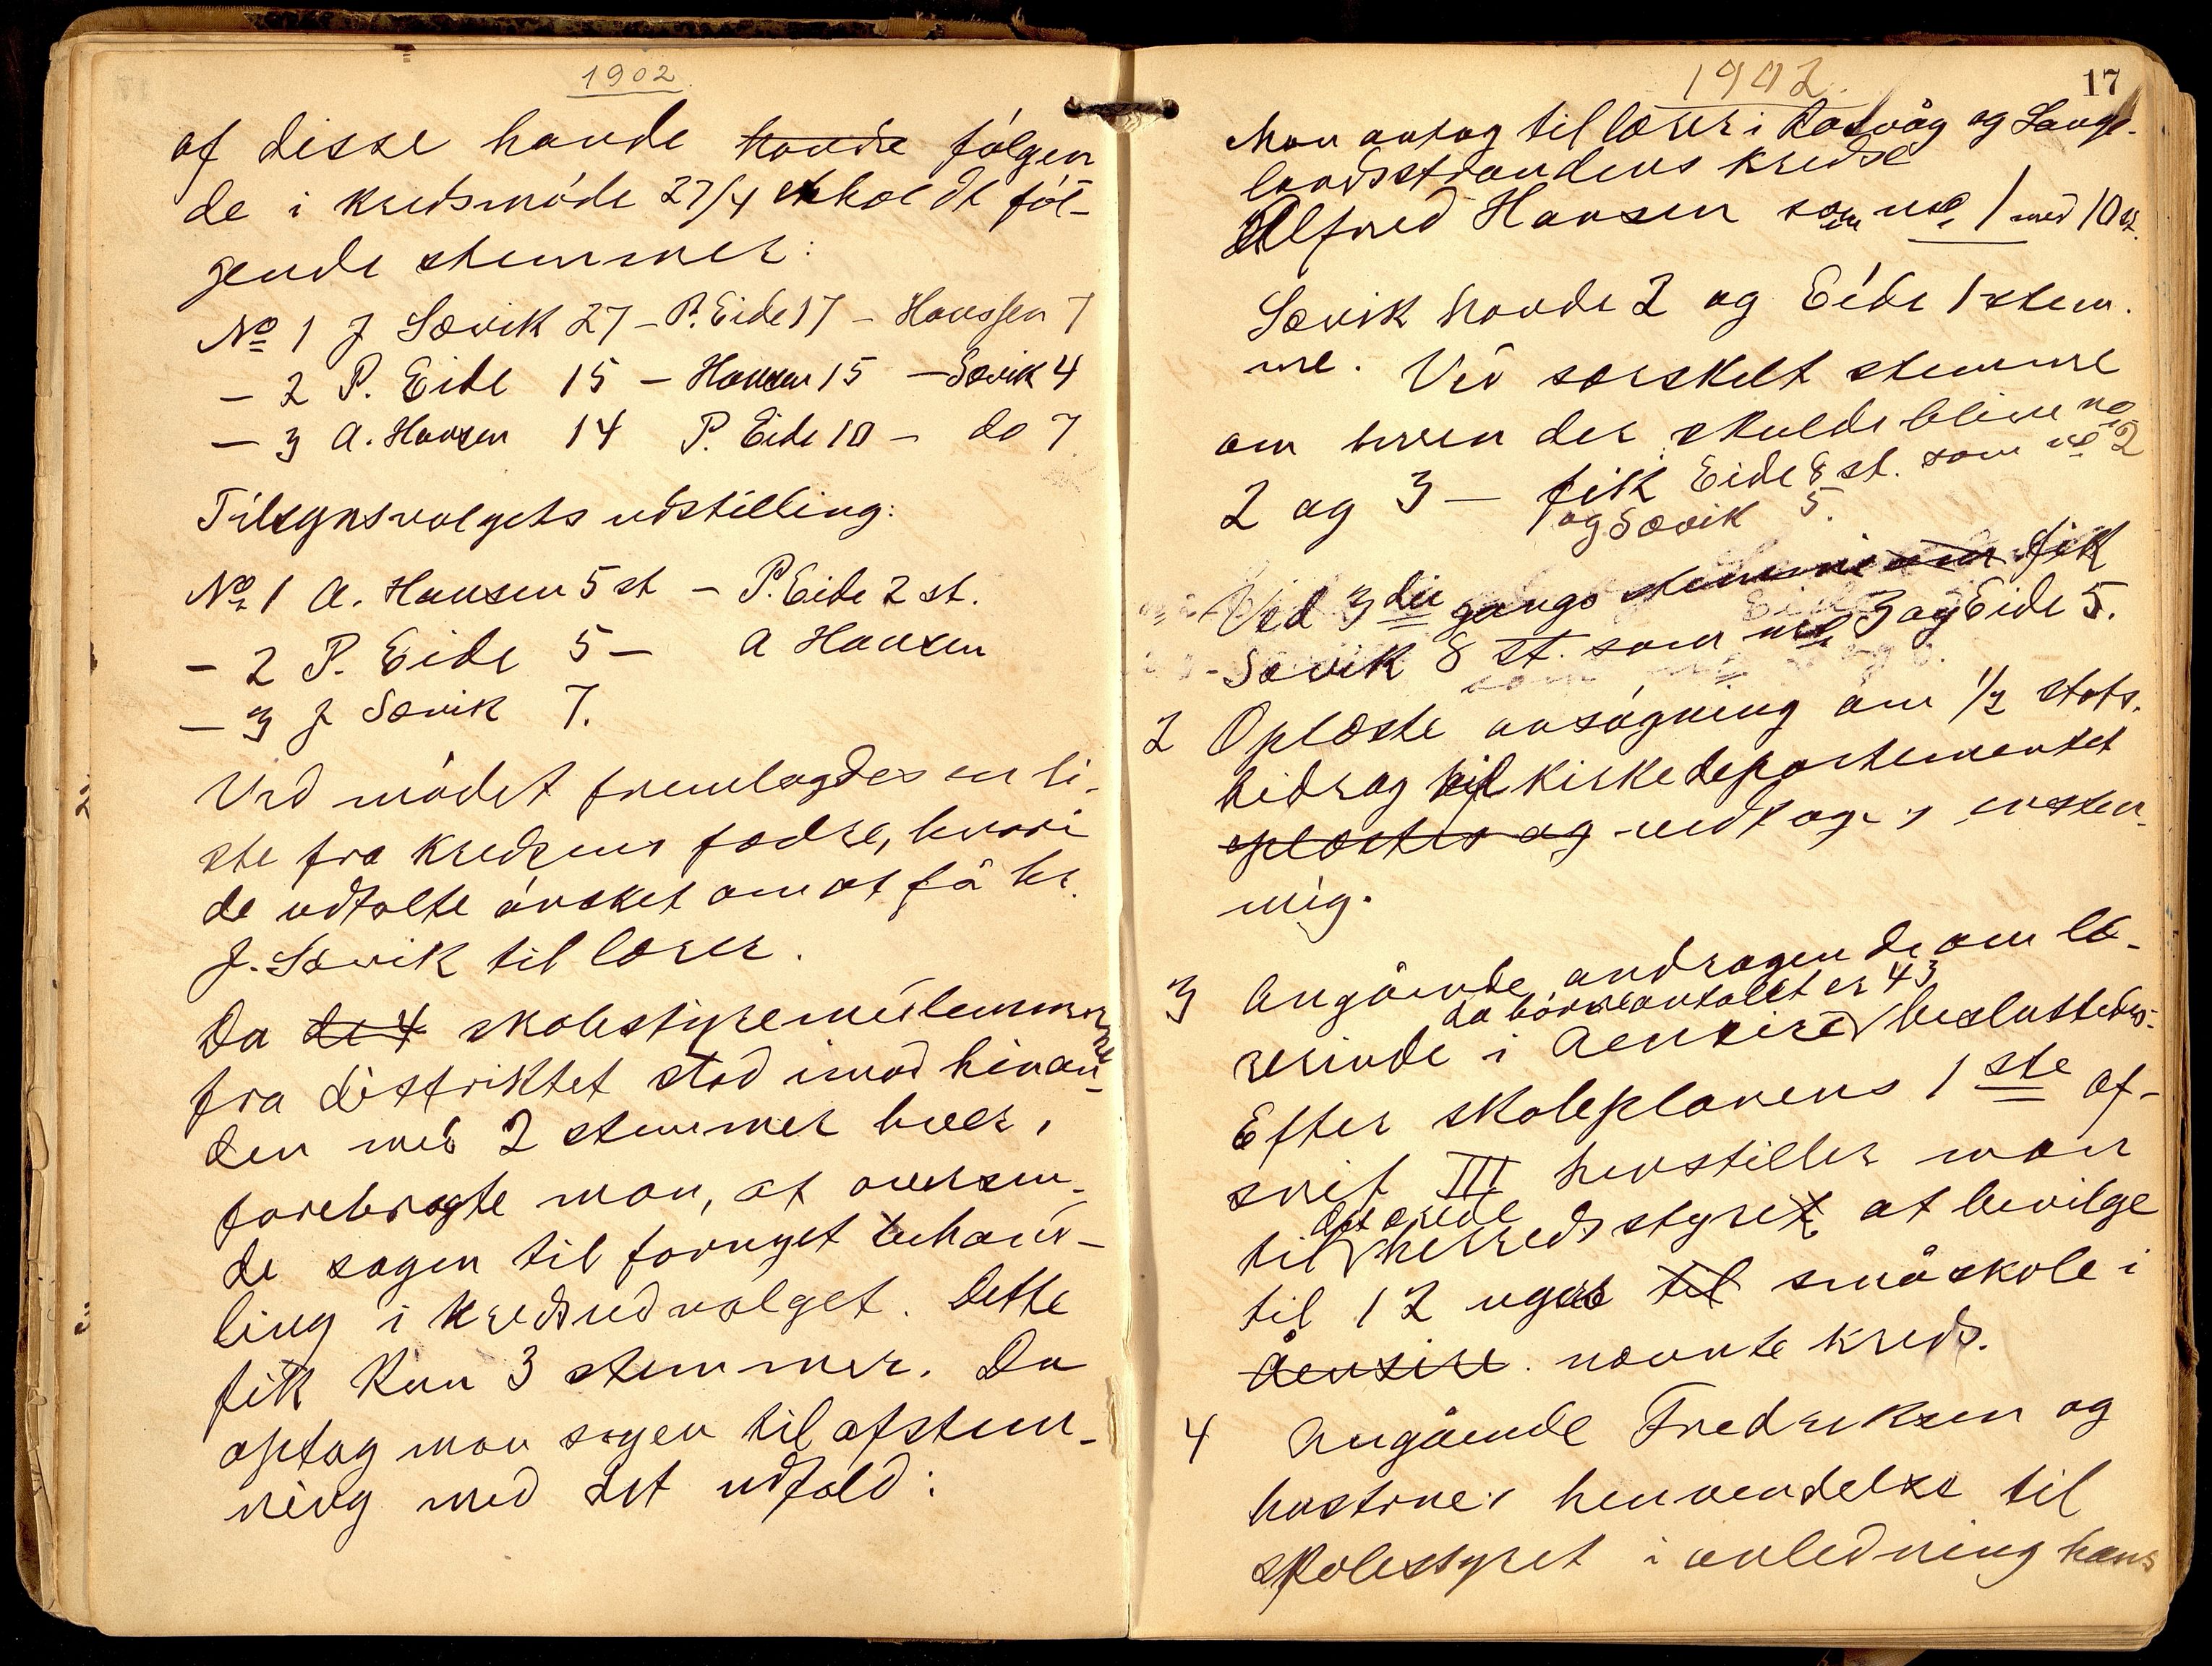 1902
af disse havde havde følgen
de i kredsmøde 27/4 erholdt føl-
gende stemmer:
No 1 J Sævik 27 - P. Eide 17 - Hanssen 7
- 2 P. Eide 15 - Hansen 15 - Sævik 4
- 3 A. Hansen 14 P. Eide 10 - do 7
Tilsynsvalgets udstilling:
No 1 A. Hansen 5 st - P. Eide 2 st.
- 2 P. Eide 5 - A Hansen
- 3 J Sævik 7.
Ved mødet fremlagdes en li-
ste fra kredsens fædre, hvori
de udtalte ønsket om at få hr.
J. Sævik til lærer.
Da de 4 skolestyremedlemmerne
fra distriktet stod imod hinan-
den med 2 stemmer hver,
forebragte man, at oversen-
de sagen til fornyet behand-
ling i kredsudvalget. Dette
fik kun 3 stemmer. Da
optog man sagen til afstem-
ning med det udfald:
1902.
17
Man antog til lærer i Rosvåg og Lange-
landsstrandens kredse
Alfred Hansen som no 1 med 10 st.
Sævik havde 2 og Eide 1 stem-
me. Ved særskilt stemme
om hvem der skulde blive no
2 og 3 - fik Eide 8 st. som no 2
og Sævik 5.
Ved 3die gangs stemmi fik
Sævik 8 st. som no 3 og Eide 5.
2 Oplæste ansøgning om 1/2 stats-
bidrag til kirkedepartementet
oplæstes og vedtoges enstem-
mig.
3 Angående andragende om læ-
da børneantallet er 43
rerinde i besluttedes:
Efter skoleplanens 1ste af-
snit III henstiller man
det ærede
til herredsstyret at bevilge
til 12 ugers til småskole i
nævnte kreds.
4 Angående Fredriksen og
hustrues henvendelse til
skolestyret i anledning hans